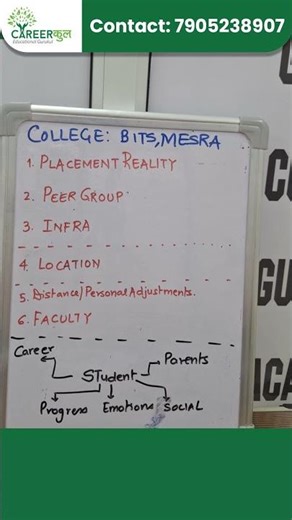 CAREERकुल
Educational Gurukul
Contact: 7905238907
COLLEGE: BITS, MESRA
1. PLACEMENT REALITY
2. PEER GROUP
3. INFRA
4. LOCATION
5. Distance/Personal Adjustments.
6. FACULTY
Career
Parents
STudent
Progress Emotions SOCIAL